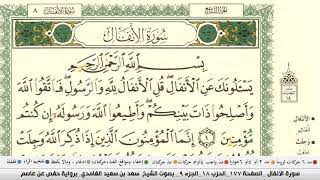 الجزء التاسع
سورة الأنفال
٨
سُورَةُ الأَنفَالِ
بِسْمِ اللَّهِ الرَّحْمَٰنِ الرَّحِيمِ
يَسْـَٔلُونَكَ عَنِ الْأَنفَالِ ۖ قُلِ الْأَنفَالُ لِلَّهِ وَالرَّسُولِ ۖ فَاتَّقُوا اللَّهَ
وَأَصْلِحُوا ذَاتَ بَيْنِكُمْ ۖ وَأَطِيعُوا اللَّهَ وَرَسُولَهُ إِن كُنتُم
مُّؤْمِنِينَ ١ إِنَّمَا الْمُؤْمِنُونَ الَّذِينَ إِذَا ذُكِرَ اللَّهُ وَجِلَتْ
الأنفال
سورة الأنفال . الصفحة ١٧٧ . الحزب ١٨ . الجزء ٩ . بصوت الشيخ سعد بن سعيد الغامدي . برواية حفص عن عاصم